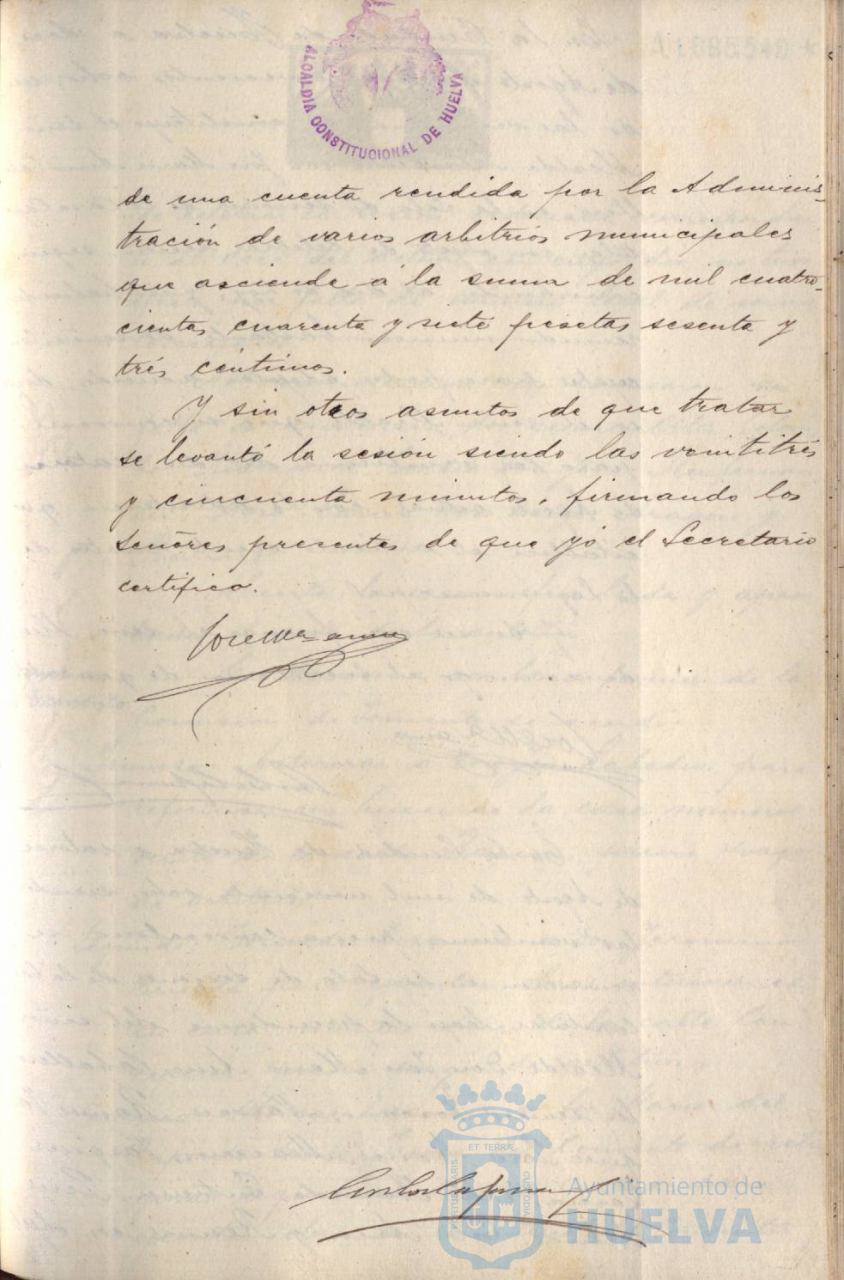 ALCALDIA CONSTITUCIONAL DE HUELVA
de una cuenta rendida por la Adminis-
tración de varios arbitrios municipales
que asciende á la suma de mil cuatro-
cientas cuarenta y siete pesetas sesenta y
trés céntimos.
Y sin otros asuntos de que tratar
se levantó la sesión siendo las veintitrés
y cincuenta minutos, firmando los
señores presentes de que yó el Secretario
certifico.
ET TERRÆ
Ayuntamiento de
HUELVA